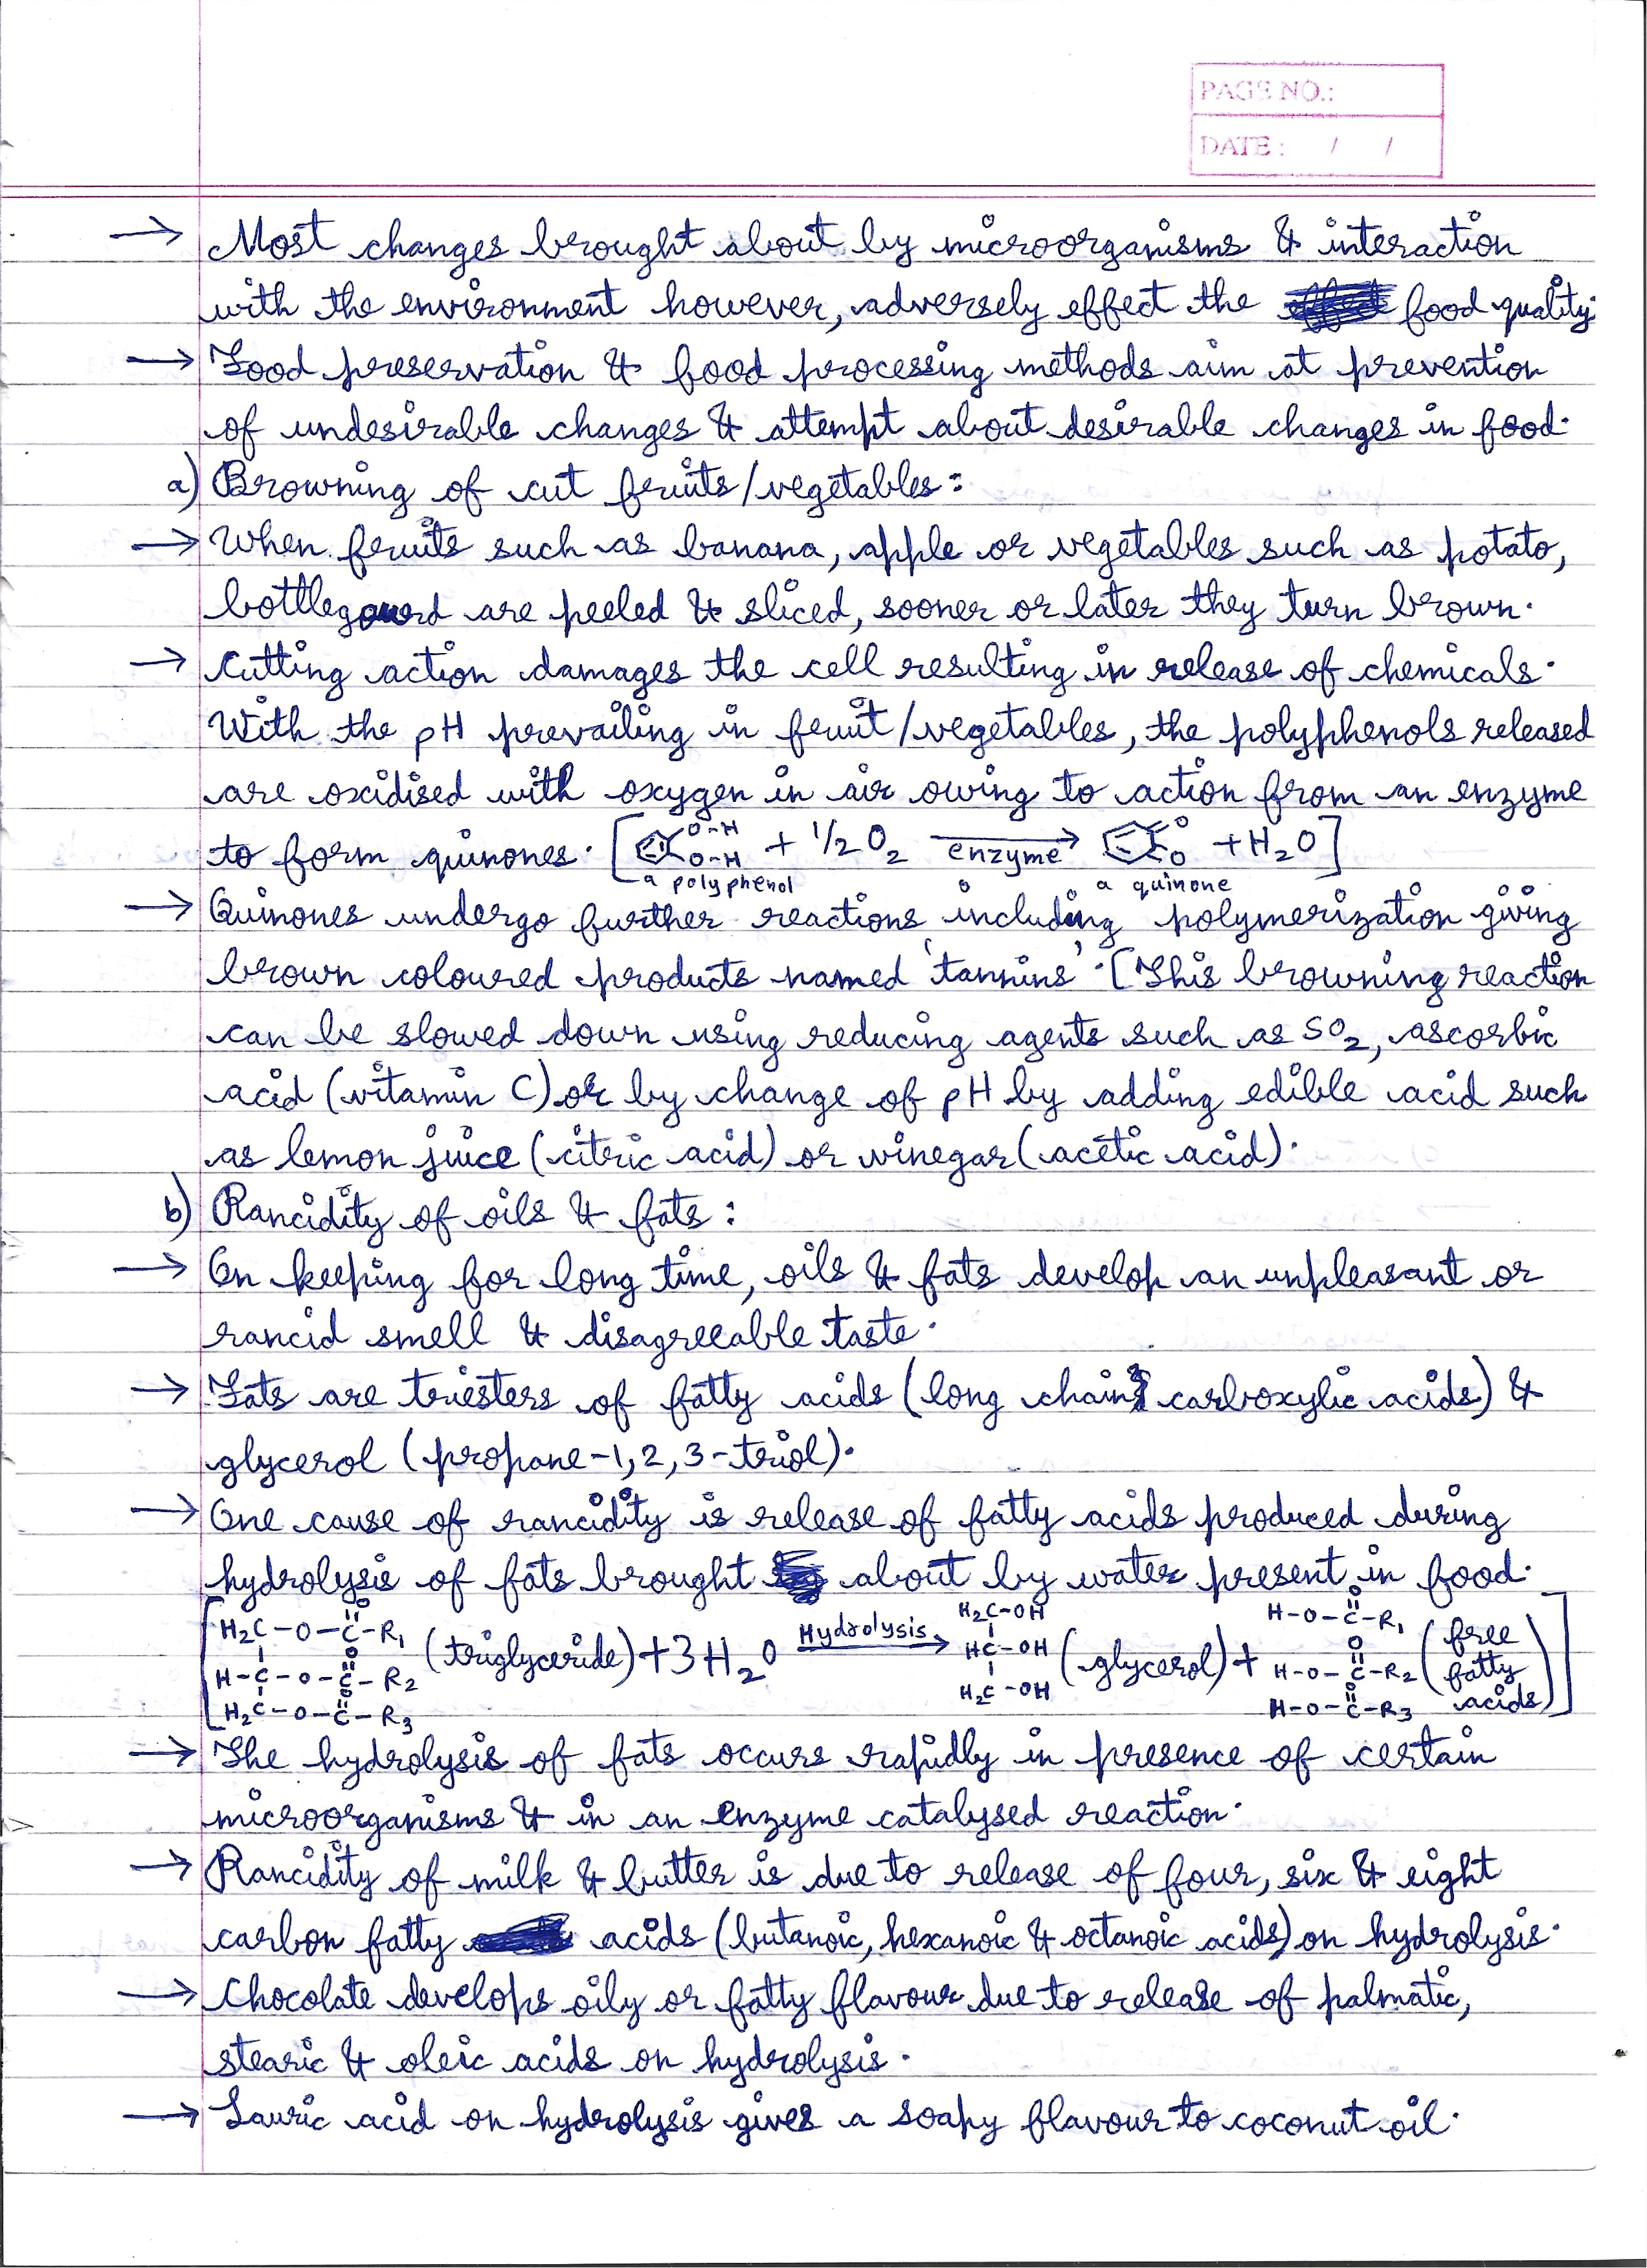 PAGE NO.:
DATE : / /
→ Most changes brought about by microorganisms & interaction
with the environment however, adversely effect the food quality.
→ Food preservation & food processing methods aim at prevention
of undesirable changes & attempt about desirable changes in food.
a) Browning of cut fruits/vegetables:
→ When fruits such as banana, apple or vegetables such as potato,
bottlegourd are peeled & sliced, sooner or later they turn brown.
→ Cutting action damages the cell resulting in release of chemicals.
With the pH prevailing in fruit/vegetables, the polyphenols released
are oxidised with oxygen in air owing to action from an enzyme
to form quinones. [ O-H O-H + 1/2 O2 enzyme → O O + H2O ]
a polyphenol a quinone
→ Quinones undergo further reactions including polymerization giving
brown coloured products named 'tannins'. [This browning reaction
can be slowed down using reducing agents such as SO2, ascorbic
acid (vitamin C) or by change of pH by adding edible acid such
as lemon juice (citric acid) or vinegar (acetic acid).
b) Rancidity of oils & fats:
→ On keeping for long time, oils & fats develop an unpleasant or
rancid smell & disagreeable taste.
→ Fats are triesters of fatty acids (long chain carboxylic acids) &
glycerol (propane-1,2,3-triol).
→ One cause of rancidity is release of fatty acids produced during
hydrolysis of fats brought about by water present in food.
[H2C-O-C-R1 O H2C-OH H-O-C-R1 O
H-C-O-C-R2 O (triglyceride) + 3H2O Hydrolysis → HC-OH (glycerol) + H-O-C-R2 O (free fatty acids)
H2C-O-C-R3 O H2C-OH H-O-C-R3 O]
→ The hydrolysis of fats occurs rapidly in presence of certain
microorganisms & in an enzyme catalysed reaction.
→ Rancidity of milk & butter is due to release of four, six & eight
carbon fatty acids (butanoic, hexanoic & octanoic acids) on hydrolysis.
→ Chocolate develops oily or fatty flavour due to release of palmatic,
stearic & oleic acids on hydrolysis.
→ Lauric acid on hydrolysis gives a soapy flavour to coconut oil.